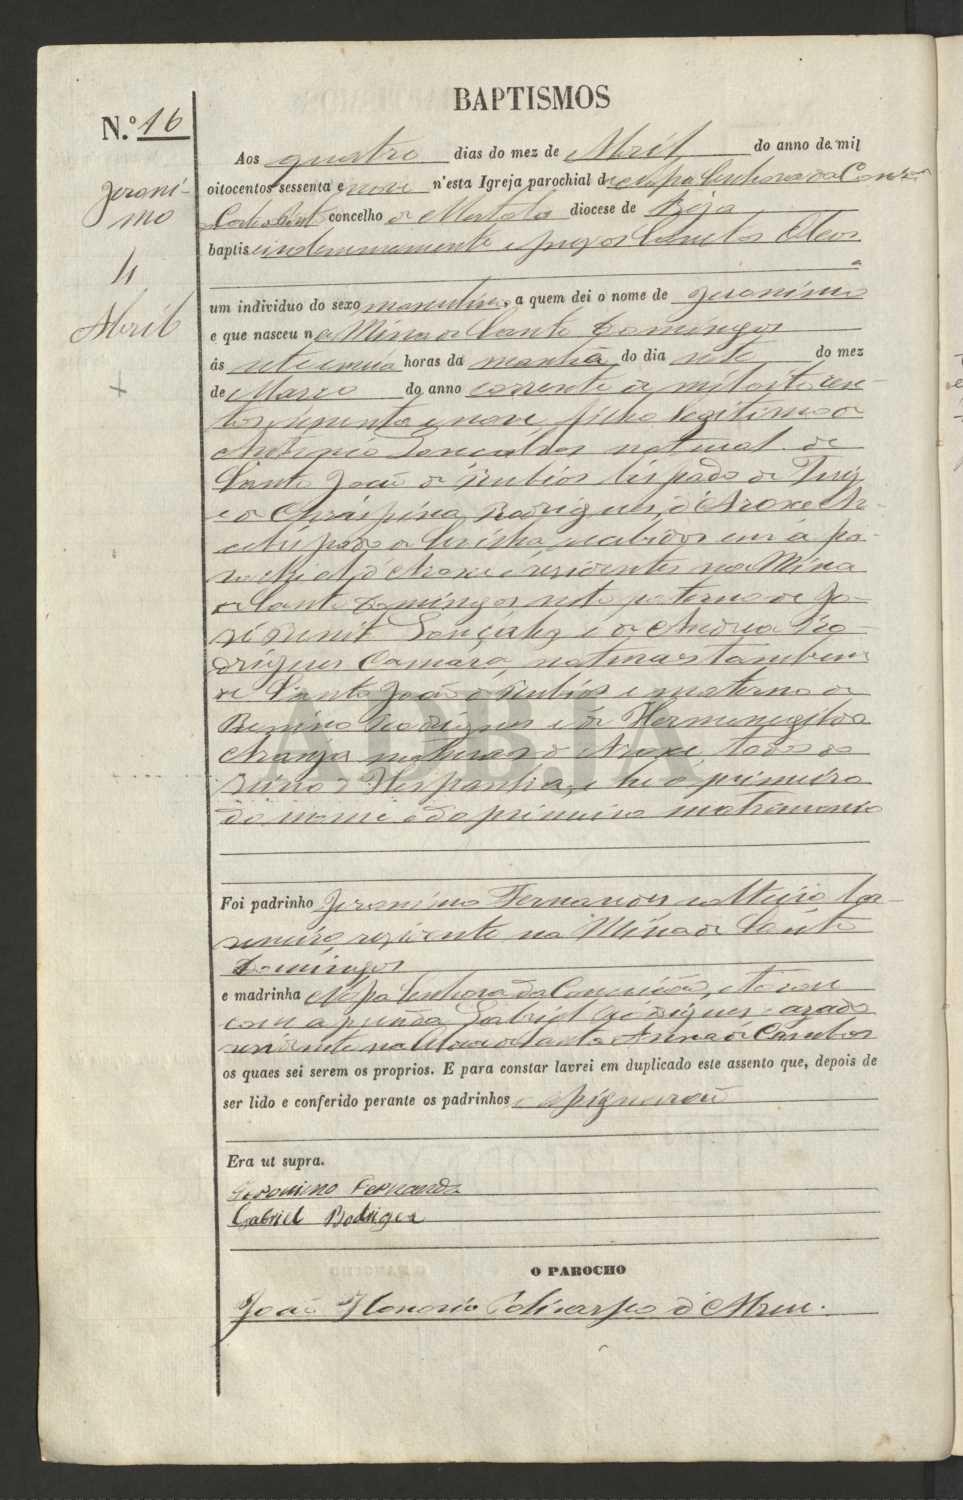 BAPTISMOS
N.º 16
Jeroni-
mo
4
Abril
Aos quatro dias do mez de Abril do anno de mil
oitocentos sessenta e nove n'esta Igreja parochial de Nossa Senhora da Conce
concelho de Mertola diocese de Beja
baptisei solemnemente e puz os Santos Oleos
a
um individuo do sexo masculino, a quem dei o nome de Jeronimo
e que nasceu na Mina de Santo Domingos
ás sete e meia horas da manhã do dia sete do mez
de Março do anno corrente de mil oitocen-
tos sessenta e nove, filho legitimo de
Antonio Gonçalves natural de
Santo João de Rubiós bispado de Tuy
e de Chrispina Rodrigues, d'Aroxe Ar-
cebispado de Sevilha, recebidos em a pa-
rochial d'Aroxe e residentes na Mina
de Santo Domingos neto paterno de Jo-
sé Gonçalves e de Andrea Ro-
drigues Camara, naturaes tambem
de Santo João de Rubiós e materno de
Rodrigues e de Hermenegilda
naturaes d'Aroxe, todos do
reino d'Hespanha, e he o primeiro
do nome e do primeiro matrimonio
Foi padrinho Jeronimo Fernandes solteiro
residente na Mina de Santo
Domingos
e madrinha Nossa Senhora da Conceição, e tocou
com a prenda Gabriel Rodrigues casado
residente na Mina de Santo Domingos
os quaes sei serem os proprios. E para constar lavrei em duplicado este assento que, depois de
ser lido e conferido perante os padrinhos assignarão
Era ut supra.
Geronimo Fernandez
Gabriel Rodrigez
O PAROCHO
João Honorio Policarpo d'Abreu.
ADBJA